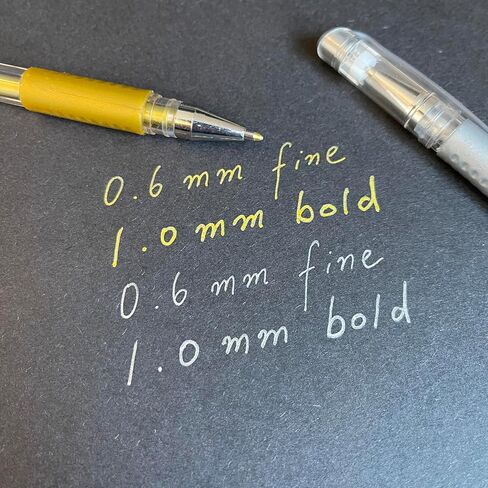 0.6 mm fine
1.0 mm bold
0.6 mm fine
1.0 mm bold